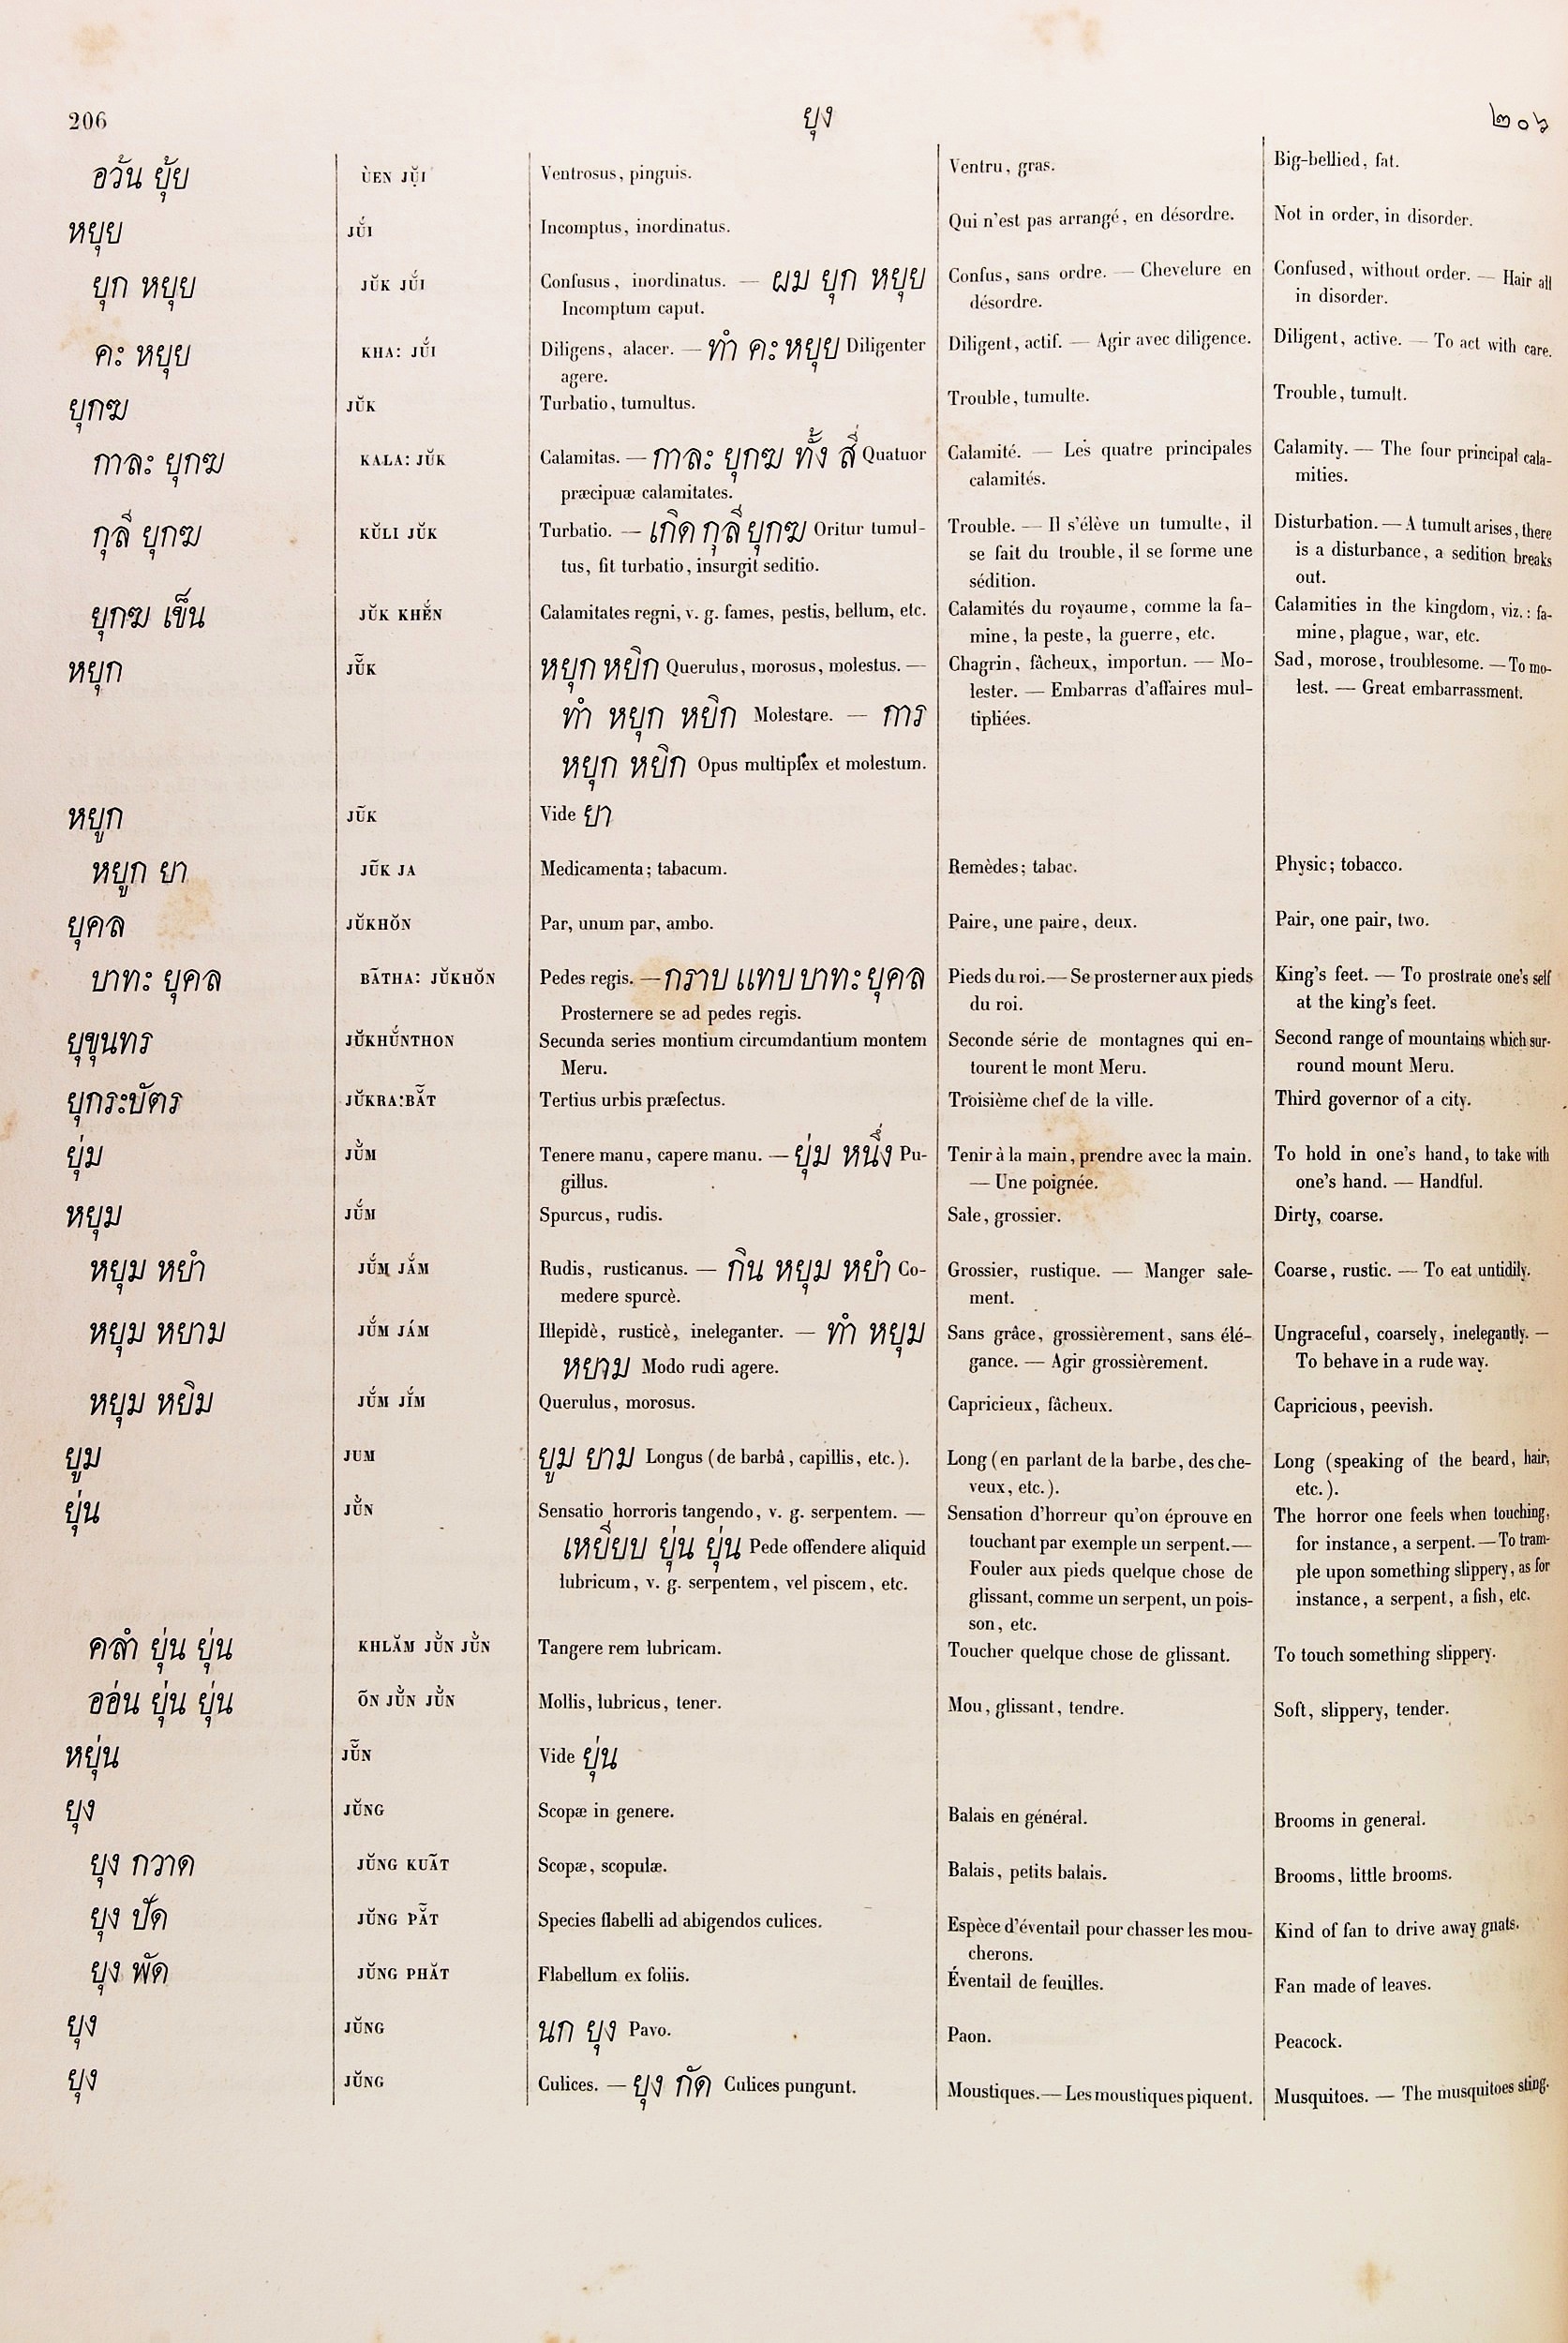 206 ยุง ๒๐๖
อว้น ยุ้ย ÙEN JỤ̆I Ventrosus, pinguis. Ventru, gras. Big-bellied, fat.
หยุย JŬ́I Incomptus, inordinatus. Qui n'est pas arrangé, en désordre. Not in order, in disorder.
ยุก หยุย JŬK JŬ́I Confusus, inordinatus. — ผม ยุก หยุย Confus, sans ordre. — Chevelure en Confused, without order. — Hair all
Incomptum caput. désordre. in disorder.
คะ หยุย KHA: JŬ́I Diligens, alacer. — ทำ คะ หยุย Diligenter Diligent, actif. — Agir avec diligence. Diligent, active. — To act with care.
agere.
ยุกฆ JŬK Turbatio, tumultus. Trouble, tumulte. Trouble, tumult.
กาละ ยุกฆ KALA: JŬK Calamitas. — กาละ ยุกฆ ทั้ง สี่ Quatuor Calamité. — Les quatre principales Calamity. — The four principal cala-
præcipuæ calamitates. calamités. mities.
กุลี ยุกฆ KŬLI JŬK Turbatio. — เกิด กุลี ยุกฆ Oritur tumul- Trouble. — Il s'élève un tumulte, il Disturbation. — A tumult arises, there
tus, fit turbatio, insurgit seditio. se fait du trouble, il se forme une is a disturbance, a sedition breaks
sédition. out.
ยุกฆ เข็น JŬK KHĔ́N Calamitates regni, v. g. fames, pestis, bellum, etc. Calamités du royaume, comme la fa- Calamities in the kingdom, viz.: fa-
mine, la peste, la guerre, etc. mine, plague, war, etc.
หยุก JŬ̃K หยุก หยิก Querulus, morosus, molestus. — Chagrin, fâcheux, importun. — Mo- Sad, morose, troublesome. — To mo-
ทำ หยุก หยิก Molestare. — การ lester. — Embarras d'affaires mul- lest. — Great embarrassment.
หยุก หยิก Opus multiplex et molestum. tipliées.
หยูก JŨK Vide ยา
หยูก ยา JŨK JA Medicamenta; tabacum. Remèdes; tabac. Physic; tobacco.
ยุคล JŬKHŎN Par, unum par, ambo. Paire, une paire, deux. Pair, one pair, two.
บาทะ ยุคล BÃTHA: JŬKHŎN Pedes regis. — กราบ แทบ บาทะ ยุคล Pieds du roi. — Se prosterner aux pieds King's feet. — To prostrate one's self
Prosternere se ad pedes regis. du roi. at the king's feet.
ยุขุนทร JŬKHŬ́NTHON Secunda series montium circumdantium montem Seconde série de montagnes qui en- Second range of mountains which sur-
Meru. tourent le mont Meru. round mount Meru.
ยุกระบัตร JŬKRA:BẴT Tertius urbis præfectus. Troisième chef de la ville. Third governor of a city.
ยุ่ม JŬ̀M Tenere manu, capere manu. — ยุ่ม หนึ่ง Pu- Tenir à la main, prendre avec la main. To hold in one's hand, to take with
gillus. — Une poignée. one's hand. — Handful.
หยุม JŬ́M Spurcus, rudis. Sale, grossier. Dirty, coarse.
หยุม หยำ JŬ́M JẮM Rudis, rusticanus. — กิน หยุม หยำ Co- Grossier, rustique. — Manger sale- Coarse, rustic. — To eat untidily.
medere spurcè. ment.
หยุม หยาม JŬ́M JÁM Illepidè, rusticè, ineleganter. — ทำ หยุม Sans grâce, grossièrement, sans élé- Ungraceful, coarsely, inelegantly. —
หยาม Modo rudi agere. gance. — Agir grossièrement. To behave in a rude way.
หยุม หยิม JŬ́M JĬ́M Querulus, morosus. Capricieux, fâcheux. Capricious, peevish.
ยูม JUM ยูม ยาม Longus (de barbâ, capillis, etc.). Long (en parlant de la barbe, des che- Long (speaking of the beard, hair,
veux, etc.). etc.).
ยุ่น JŬ̀N Sensatio horroris tangendo, v. g. serpentem. — Sensation d'horreur qu'on éprouve en The horror one feels when touching,
เหยียบ ยุ่น ยุ่น Pede offendere aliquid touchant par exemple un serpent. — for instance, a serpent. — To tram-
lubricum, v. g. serpentem, vel piscem, etc. Fouler aux pieds quelque chose de ple upon something slippery, as for
glissant, comme un serpent, un pois- instance, a serpent, a fish, etc.
son, etc.
คลำ ยุ่น ยุ่น KHLĂM JŬ̀N JŬ̀N Tangere rem lubricam. Toucher quelque chose de glissant. To touch something slippery.
ออ่น ยุ่น ยุ่น ÕN JŬ̀N JŬ̀N Mollis, lubricus, tener. Mou, glissant, tendre. Soft, slippery, tender.
หยุ่น JŬ̃N Vide ยุ่น
ยุง JŬNG Scopæ in genere. Balais en général. Brooms in general.
ยุง กวาด JŬNG KUÃT Scopæ, scopulæ. Balais, petits balais. Brooms, little brooms.
ยุง ปัด JŬNG PẴT Species flabelli ad abigendos culices. Espèce d'éventail pour chasser les mou- Kind of fan to drive away gnats.
cherons.
ยุง พัด JŬNG PHĂT Flabellum ex foliis. Éventail de feuilles. Fan made of leaves.
ยุง JŬNG นก ยุง Pavo. Paon. Peacock.
ยุง JŬNG Culices. — ยุง กัด Culices pungunt. Moustiques. — Les moustiques piquent. Musquitoes. — The musquitoes sting.